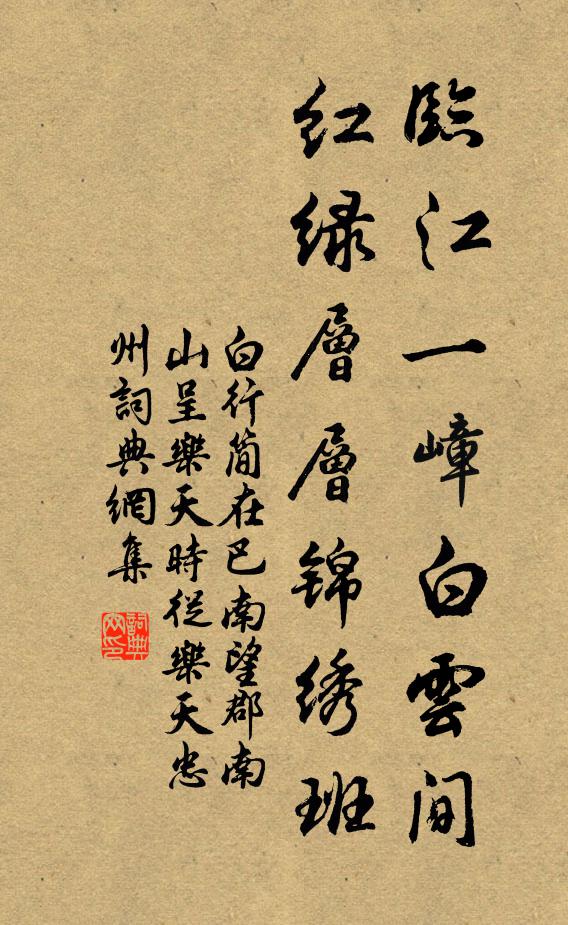 臨江一嶂白雲間
紅緑層層錦绣班
白行简在巴南望郡南
山呈樂天時從樂天忠
州詞典網集
詞典
网印